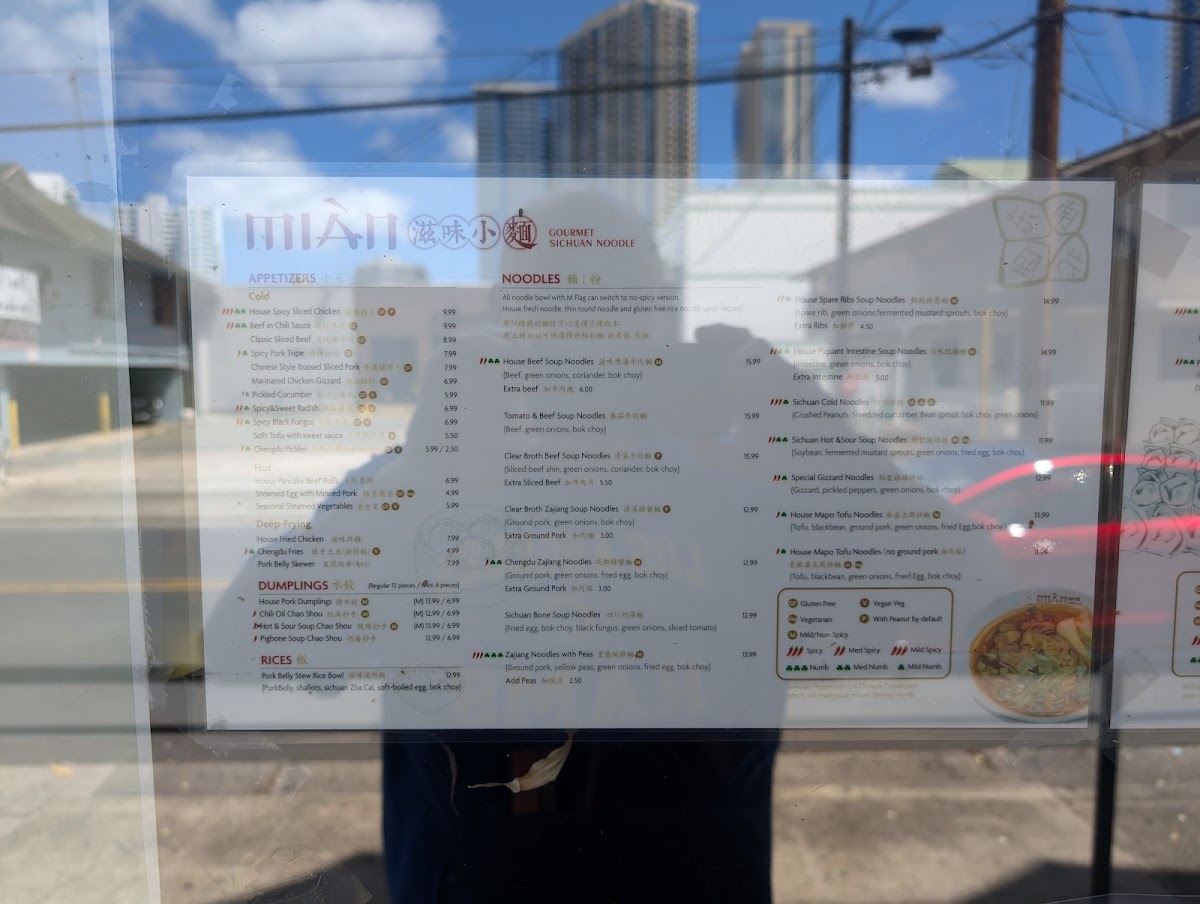 MIÀN 滋味小麵 GOURMET
SICHUAN NOODLE
APPETIZERS 小菜
Cold
House Spicy Sliced Chicken GF P 9.99
Beef in Chili Sauce GF 9.99
Classic Sliced Beef GF 8.99
Spicy Pork Tripe GF 7.99
Chinese Style Braised Sliced Pork GF 7.99
Marinated Chicken Gizzard GF 6.99
Pickled Cucumber GF V 5.99
Spicy&Sweet Radish GF V 6.99
Spicy Black Fungus GF V 6.99
Soft Tofu with sweet sauce 5.50
Chengdu Pickles GF V 5.99 / 2.50
Hot
House Pancake Beef Rolls 6.99
Steamed Egg with Minced Pork GF 4.99
Seasonal Steamed Vegetables GF V 5.99
Deep-Frying
House Fried Chicken 滋味炸雞 7.99
Chengdu Fries V 4.99
Pork Belly Skewer 五花肉串(4pcs) 7.99
DUMPLINGS 水餃 (Regular 12 pieces / Mini 6 pieces)
House Pork Dumplings M (M) 13.99 / 6.99
Chili Oil Chao Shou 紅油抄手 M (M) 12.99 / 6.99
Hot & Sour Soup Chao Shou 酸辣抄手 M (M) 13.99 / 6.99
Pigbone Soup Chao Shou 12.99 / 6.99
RICES 飯
Pork Belly Stew Rice Bowl 滋味滷肉飯 12.99
(PorkBelly, shallots, sichuan Zha Cai, soft-boiled egg, bok choy)
NOODLES 麵 | 粉
All noodle bowl with M Flag can switch to no-spicy version.
House fresh noodle, thin round noodle and gluten free rice noodle upon request.
House Beef Soup Noodles 滋味原湯牛肉麵 M 15.99
(Beef, green onions, coriander, bok choy)
Extra beef 加牛肉塊 6.00
Tomato & Beef Soup Noodles 番茄牛肉麵 15.99
(Beef, green onions, bok choy)
Clear Broth Beef Soup Noodles 清湯牛肉麵 P 15.99
(Sliced beef shin, green onions, coriander, bok choy)
Extra Sliced Beef 加牛肉片 5.50
Clear Broth Zajiang Soup Noodles 清湯雜醬麵 P 12.99
(Ground pork, green onions, bok choy)
Extra Ground Pork 加肉臊 3.00
Chengdu Zajiang Noodles 成都雜醬麵 M 12.99
(Ground pork, green onions, fried egg, bok choy)
Extra Ground Pork 加肉臊 3.00
Sichuan Bone Soup Noodles 四川奶湯麵 12.99
(Fried egg, bok choy, black fungus, green onions, sliced tomato)
Zajiang Noodles with Peas 重慶豌雜麵 M 13.99
(Ground pork, yellow peas, green onions, fried egg, bok choy)
Add Peas 加豌豆 2.50
House Spare Ribs Soup Noodles M 14.99
(Spare rib, green onions,fermented mustard sprouts, bok choy)
Extra Ribs 4.50
House Piquant Intestine Soup Noodles M 14.99
(Intestine, green onions, bok choy)
Extra Intestine 加肥腸 5.00
Sichuan Cold Noodles M V P 11.99
(Crushed Peanuts, Shredded cucumber, Bean sprout, bok choy, green onions)
Sichuan Hot &Sour Soup Noodles M 11.99
(Soybean, fermented mustard sprouts, green onions, fried egg, bok choy)
Special Gizzard Noodles M 12.99
(Gizzard, pickled peppers, green onions, bok choy)
House Mapo Tofu Noodles 麻婆豆腐拌麵 M 13.99
(Tofu, blackbean, ground pork, green onions, fried Egg,bok choy)
House Mapo Tofu Noodles (no ground pork 無肉臊)
麻婆豆腐拌麵 M
(Tofu, blackbean, green onions, fried Egg, bok choy)
GF Gluten Free V Vegan Veg
Vegetarian P With Peanut by default
M Mild/Non- Spicy
Spicy Med Spicy Mild Spicy
Numb Med Numb Mild Numb
Sichuan Peppercorn is a Chinese Condiment
which will make your mouth feeling numb.
MIÀN